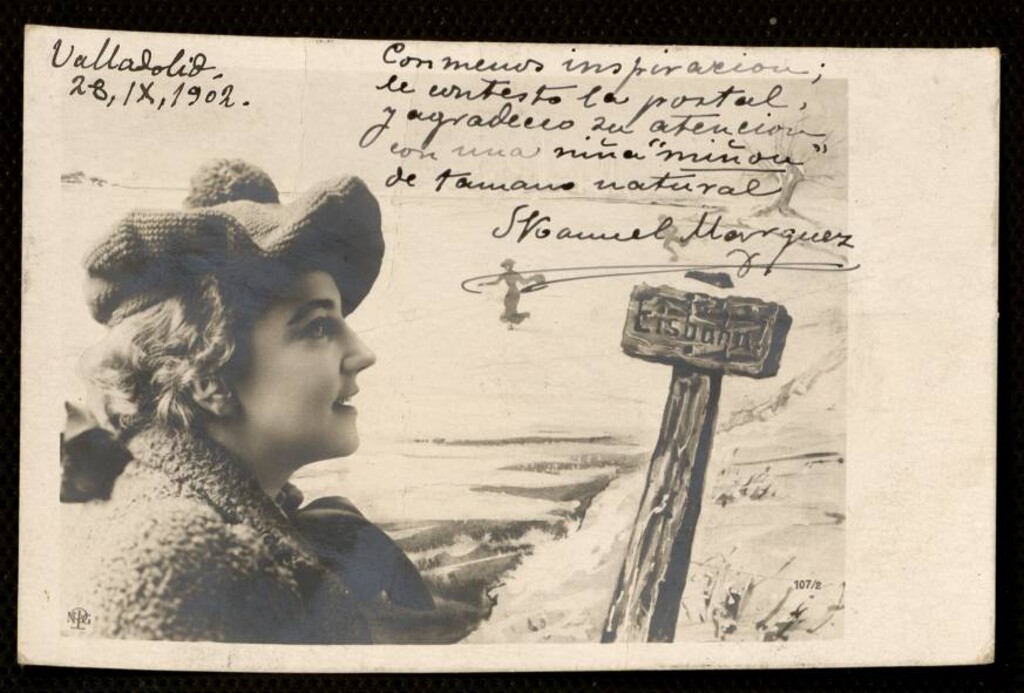 Valladolid,
28, IX, 1902.
Con menos inspiracion;
le contesto la postal,
y agradeceo su atencion
con una niña "miñon"
de tamano natural
Manuel Marquez
Eisbahn.
107/2
NPG